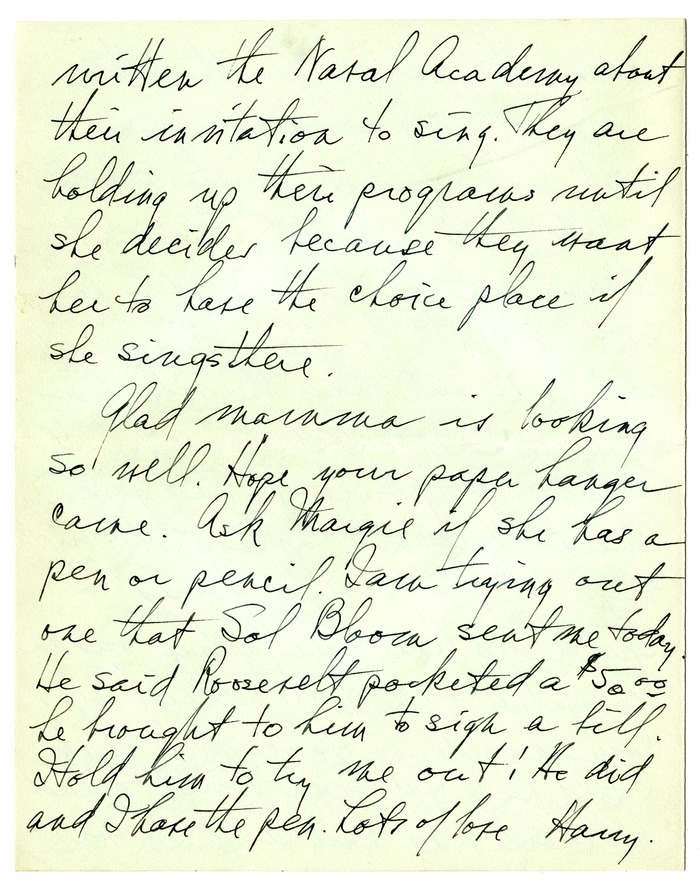 written the Naval Academy about
their invitation to sing. They are
holding up their programs until
she decides because they want
her to have the choice place if
she sings there.
Glad mamma is looking
so well. Hope your paper hanger
came. Ask Margie if she has a
pen or pencil. I am trying out
one that Sol Bloom sent me today.
He said Roosevelt pocketed a $50.00
he brought to him to sign a bill.
I told him to try me out! He did
and I have the pen. Lots of love Harry.